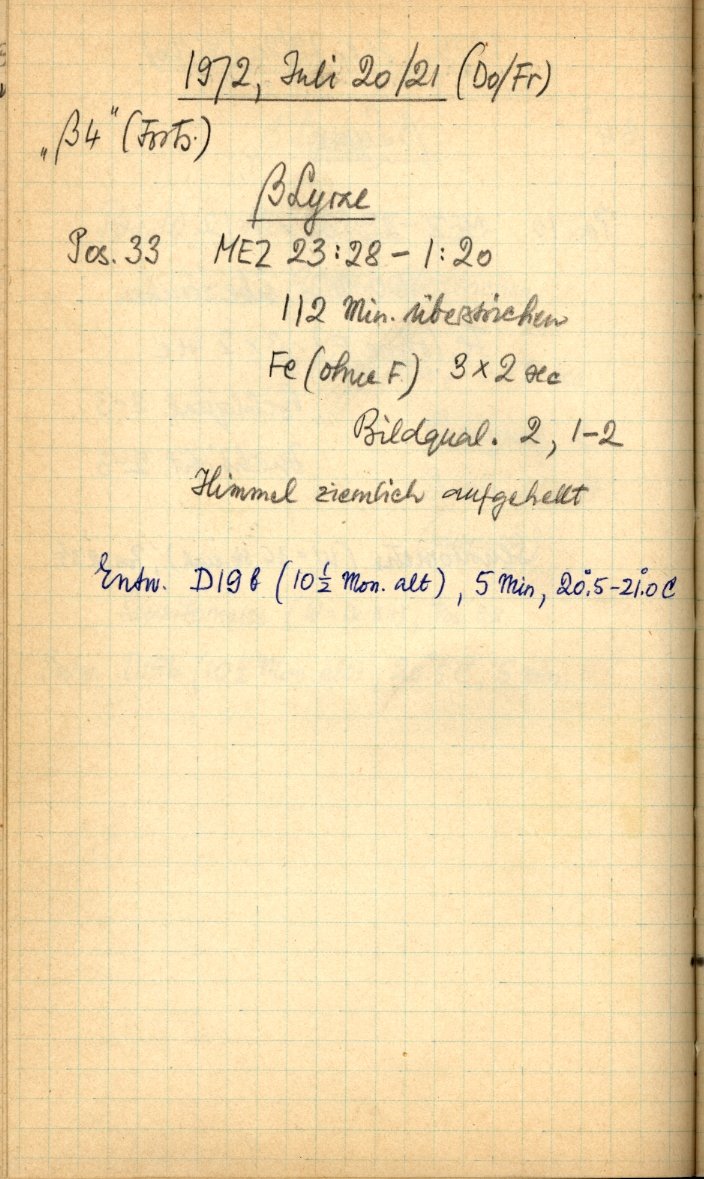 1972, Juli 20/21 (Do/Fr)
„β4" (Forts.)
β Lyrae
Pos. 33 MEZ 23:28 – 1:20
112 Min. überstrichen
Fe (ohne F.) 3 × 2 sec
Bildqual. 2, 1–2
Himmel ziemlich aufgehellt
Entw. D19b (10½ Mon. alt), 5 Min, 20°.5–21°.0 C